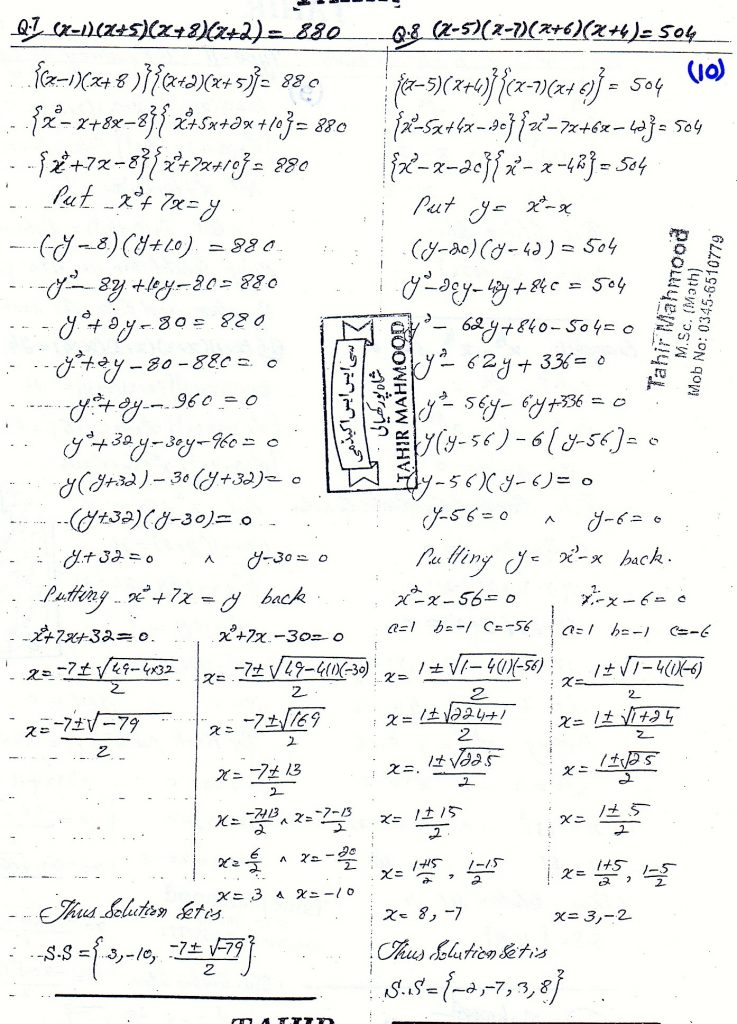 Q.7 (x-1)(x+5)(x+8)(x+2) = 880
{(x-1)(x+8)}{(x+2)(x+5)} = 880
{x²-x+8x-8}{x²+5x+2x+10} = 880
{x²+7x-8}{x²+7x+10} = 880
Put x²+7x = y
(y-8)(y+10) = 880
y²-8y+10y-80 = 880
y²+2y-80 = 880
y²+2y-80-880 = 0
y²+2y-960 = 0
y²+32y-30y-960 = 0
y(y+32)-30(y+32) = 0
(y+32)(y-30) = 0
y+32=0 ∧ y-30=0
Putting x²+7x = y back
x²+7x+32=0
x = (-7±√(49-4×32))/2
x = (-7±√-79)/2
x²+7x-30=0
x = (-7±√(49-4(1)(-30)))/2
x = (-7±√169)/2
x = (-7±13)/2
x = (-7+13)/2 ∧ x = (-7-13)/2
x = 6/2 ∧ x = -20/2
x = 3 ∧ x = -10
Thus Solution Set is
S.S = {3, -10, (-7±√-79)/2}
Q.8 (x-5)(x-7)(x+6)(x+4) = 504
(10)
{(x-5)(x+4)}{(x-7)(x+6)} = 504
{x²-5x+4x-20}{x²-7x+6x-42} = 504
{x²-x-20}{x²-x-42} = 504
Put y = x²-x
(y-20)(y-42) = 504
y²-20y-42y+840 = 504
y²-62y+840-504 = 0
y²-62y+336 = 0
y²-56y-6y+336 = 0
y(y-56)-6(y-56) = 0
(y-56)(y-6) = 0
y-56=0 ∧ y-6=0
Putting y = x²-x back.
x²-x-56=0
a=1 b=-1 c=-56
x = (1±√(1-4(1)(-56)))/2
x = (1±√(224+1))/2
x = (1±√225)/2
x = (1±15)/2
x = (1+15)/2, (1-15)/2
x = 8, -7
x²-x-6=0
a=1 b=-1 c=-6
x = (1±√(1-4(1)(-6)))/2
x = (1±√(1+24))/2
x = (1±√25)/2
x = (1±5)/2
x = (1+5)/2, (1-5)/2
x = 3, -2
Thus Solution Set is
S.S = {-2, -7, 3, 8}
TAHIR MAHMOOD
Tahir Mahmood
M.Sc. (Math)
Mob No: 0345-6510779
TAHIR